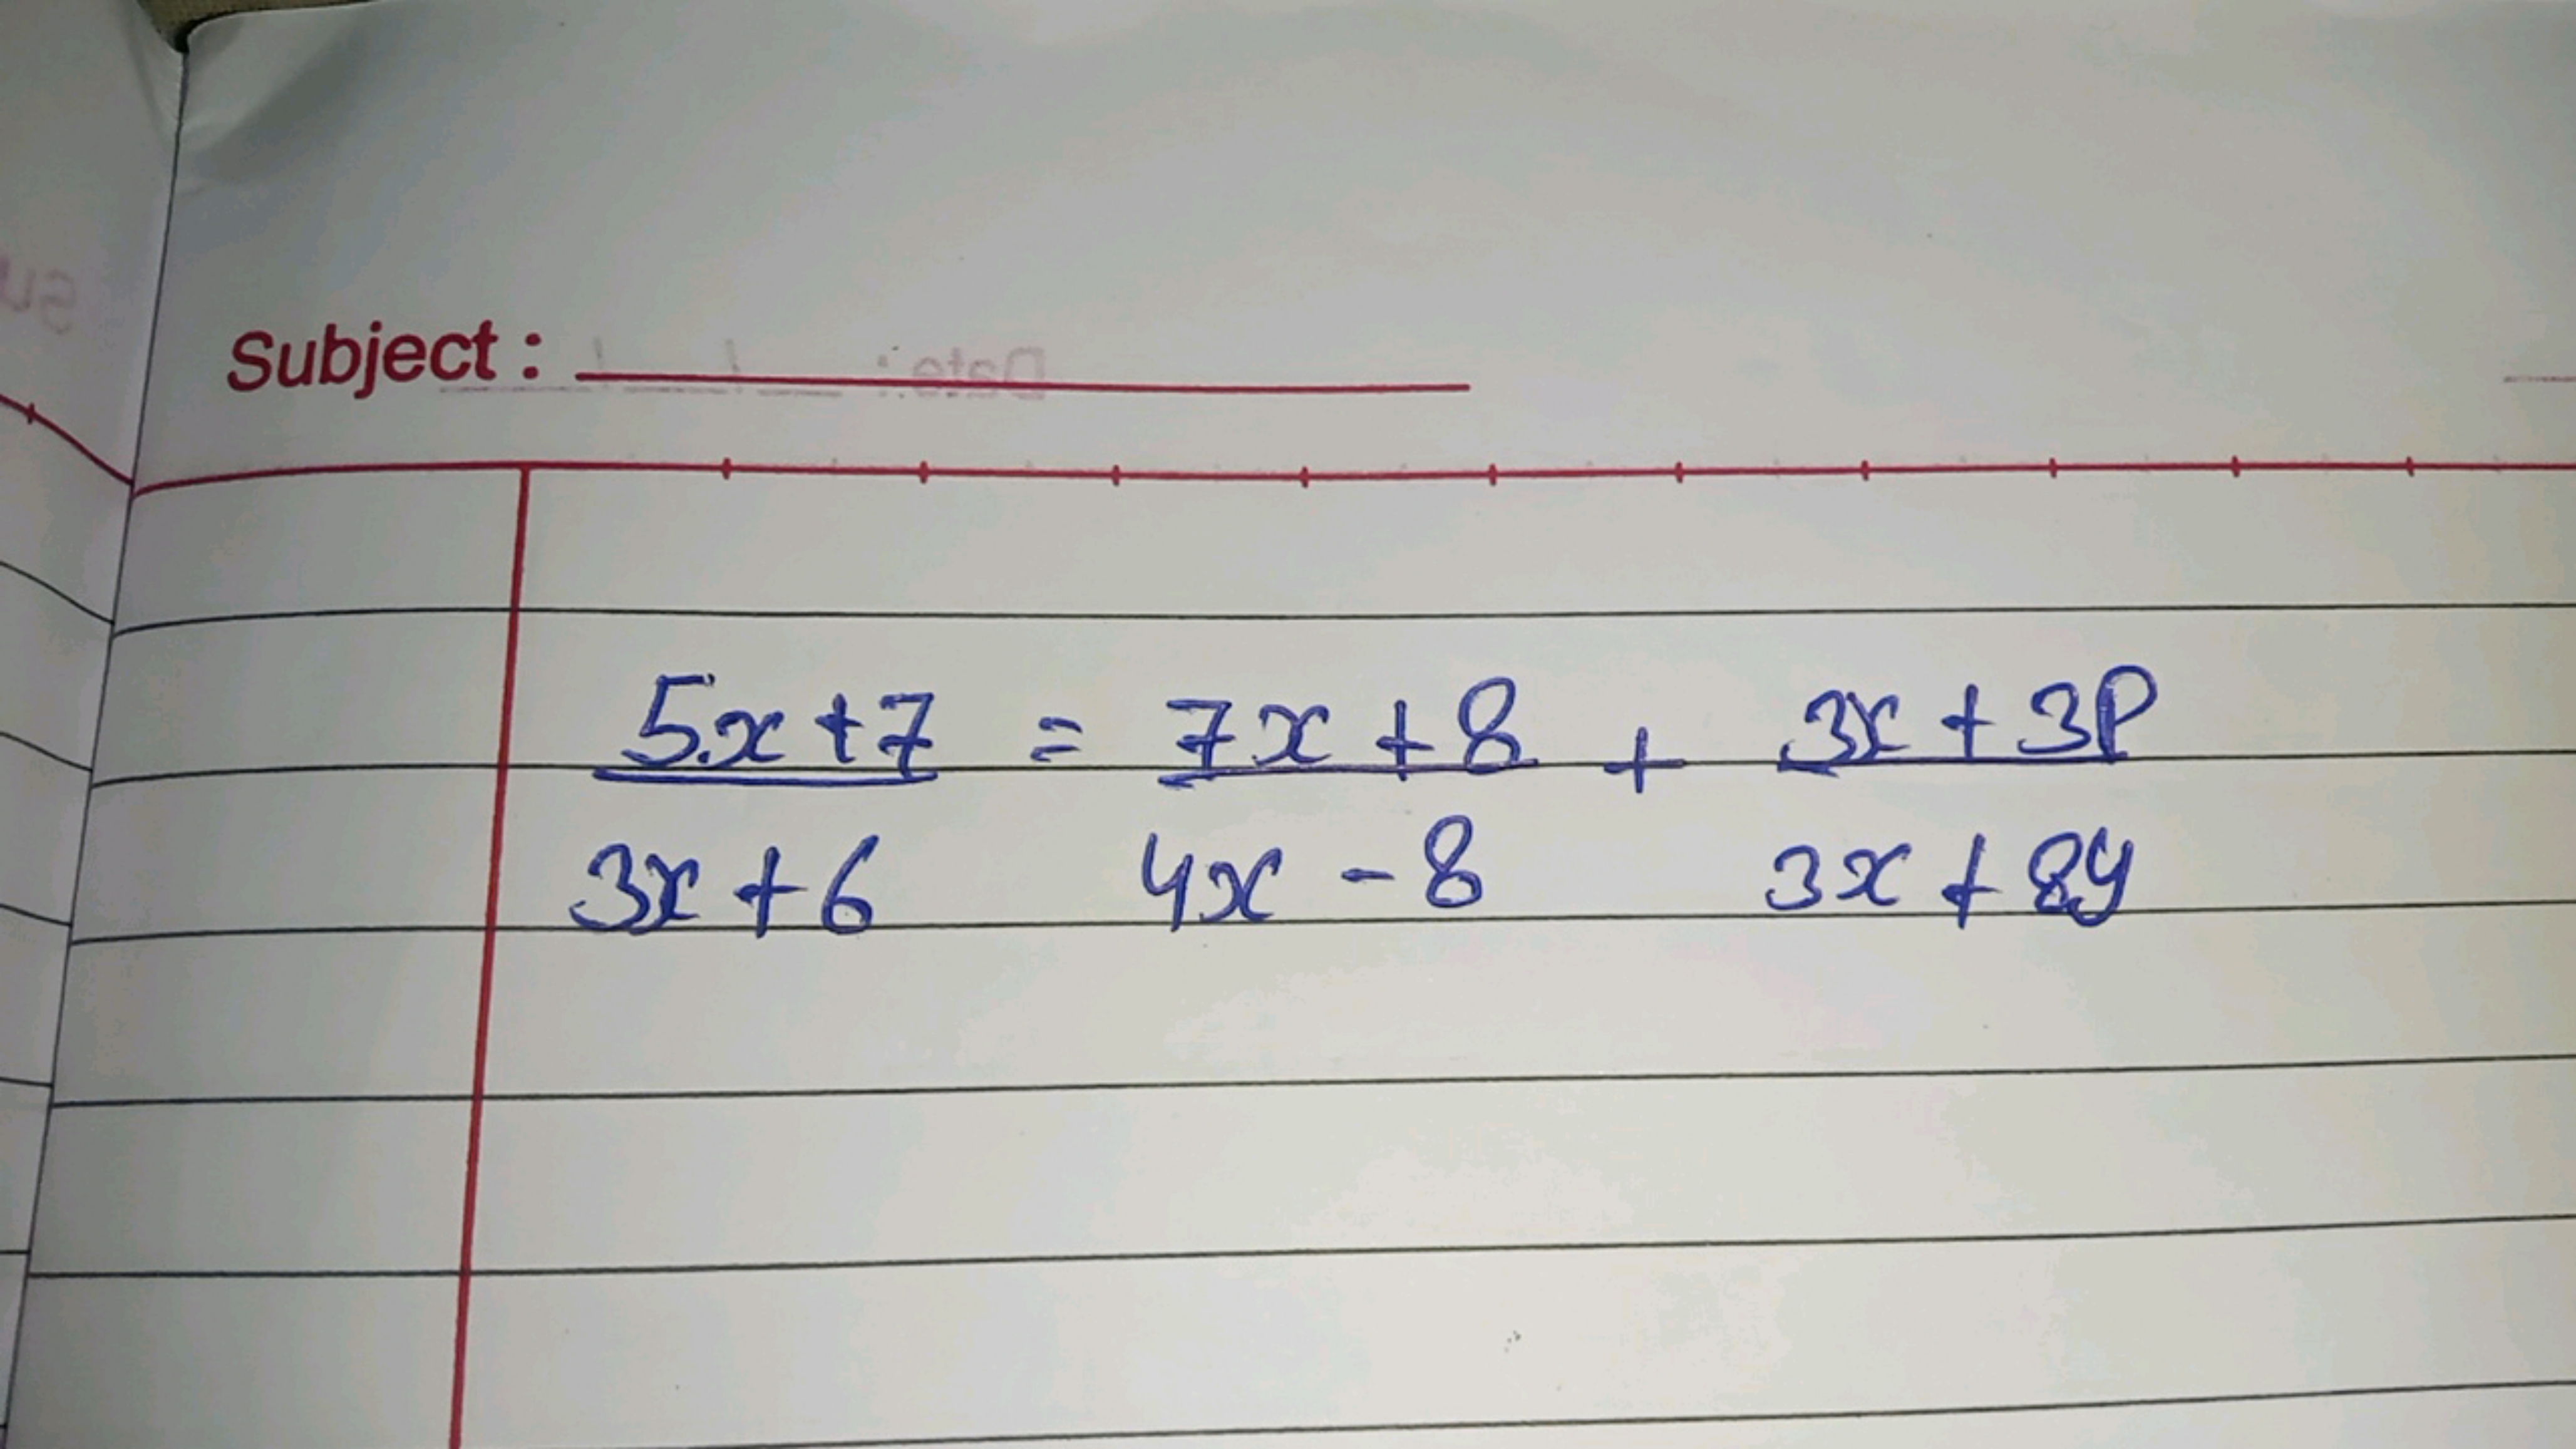 Subject :
5x+7 = 7x+8 + 3x+3P
3x+6 4x-8 3x+8y